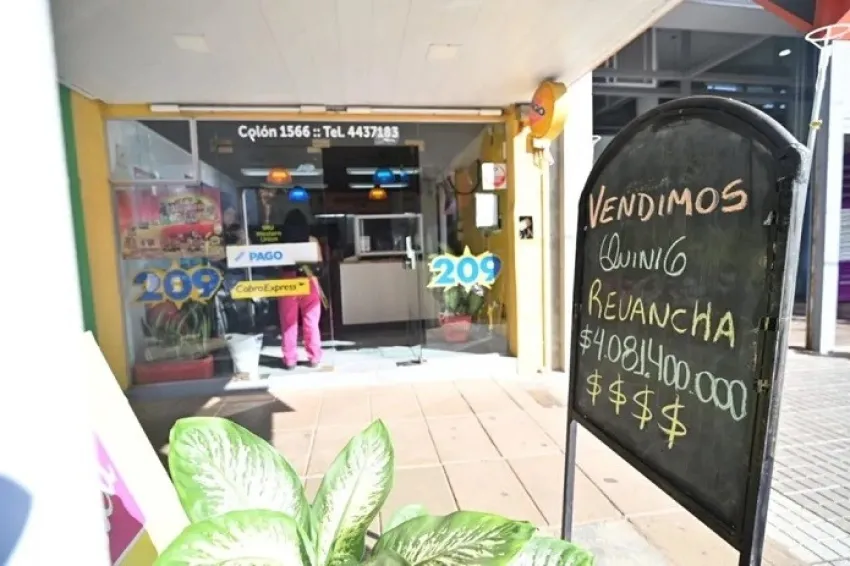 Colón 1566 :: Tel. 4437183
WU
Western
Union
PAGO
209
CobroExpress
209
VENDIMOS
QUINI6
REVANCHA
$4.081.400.000
$$$$